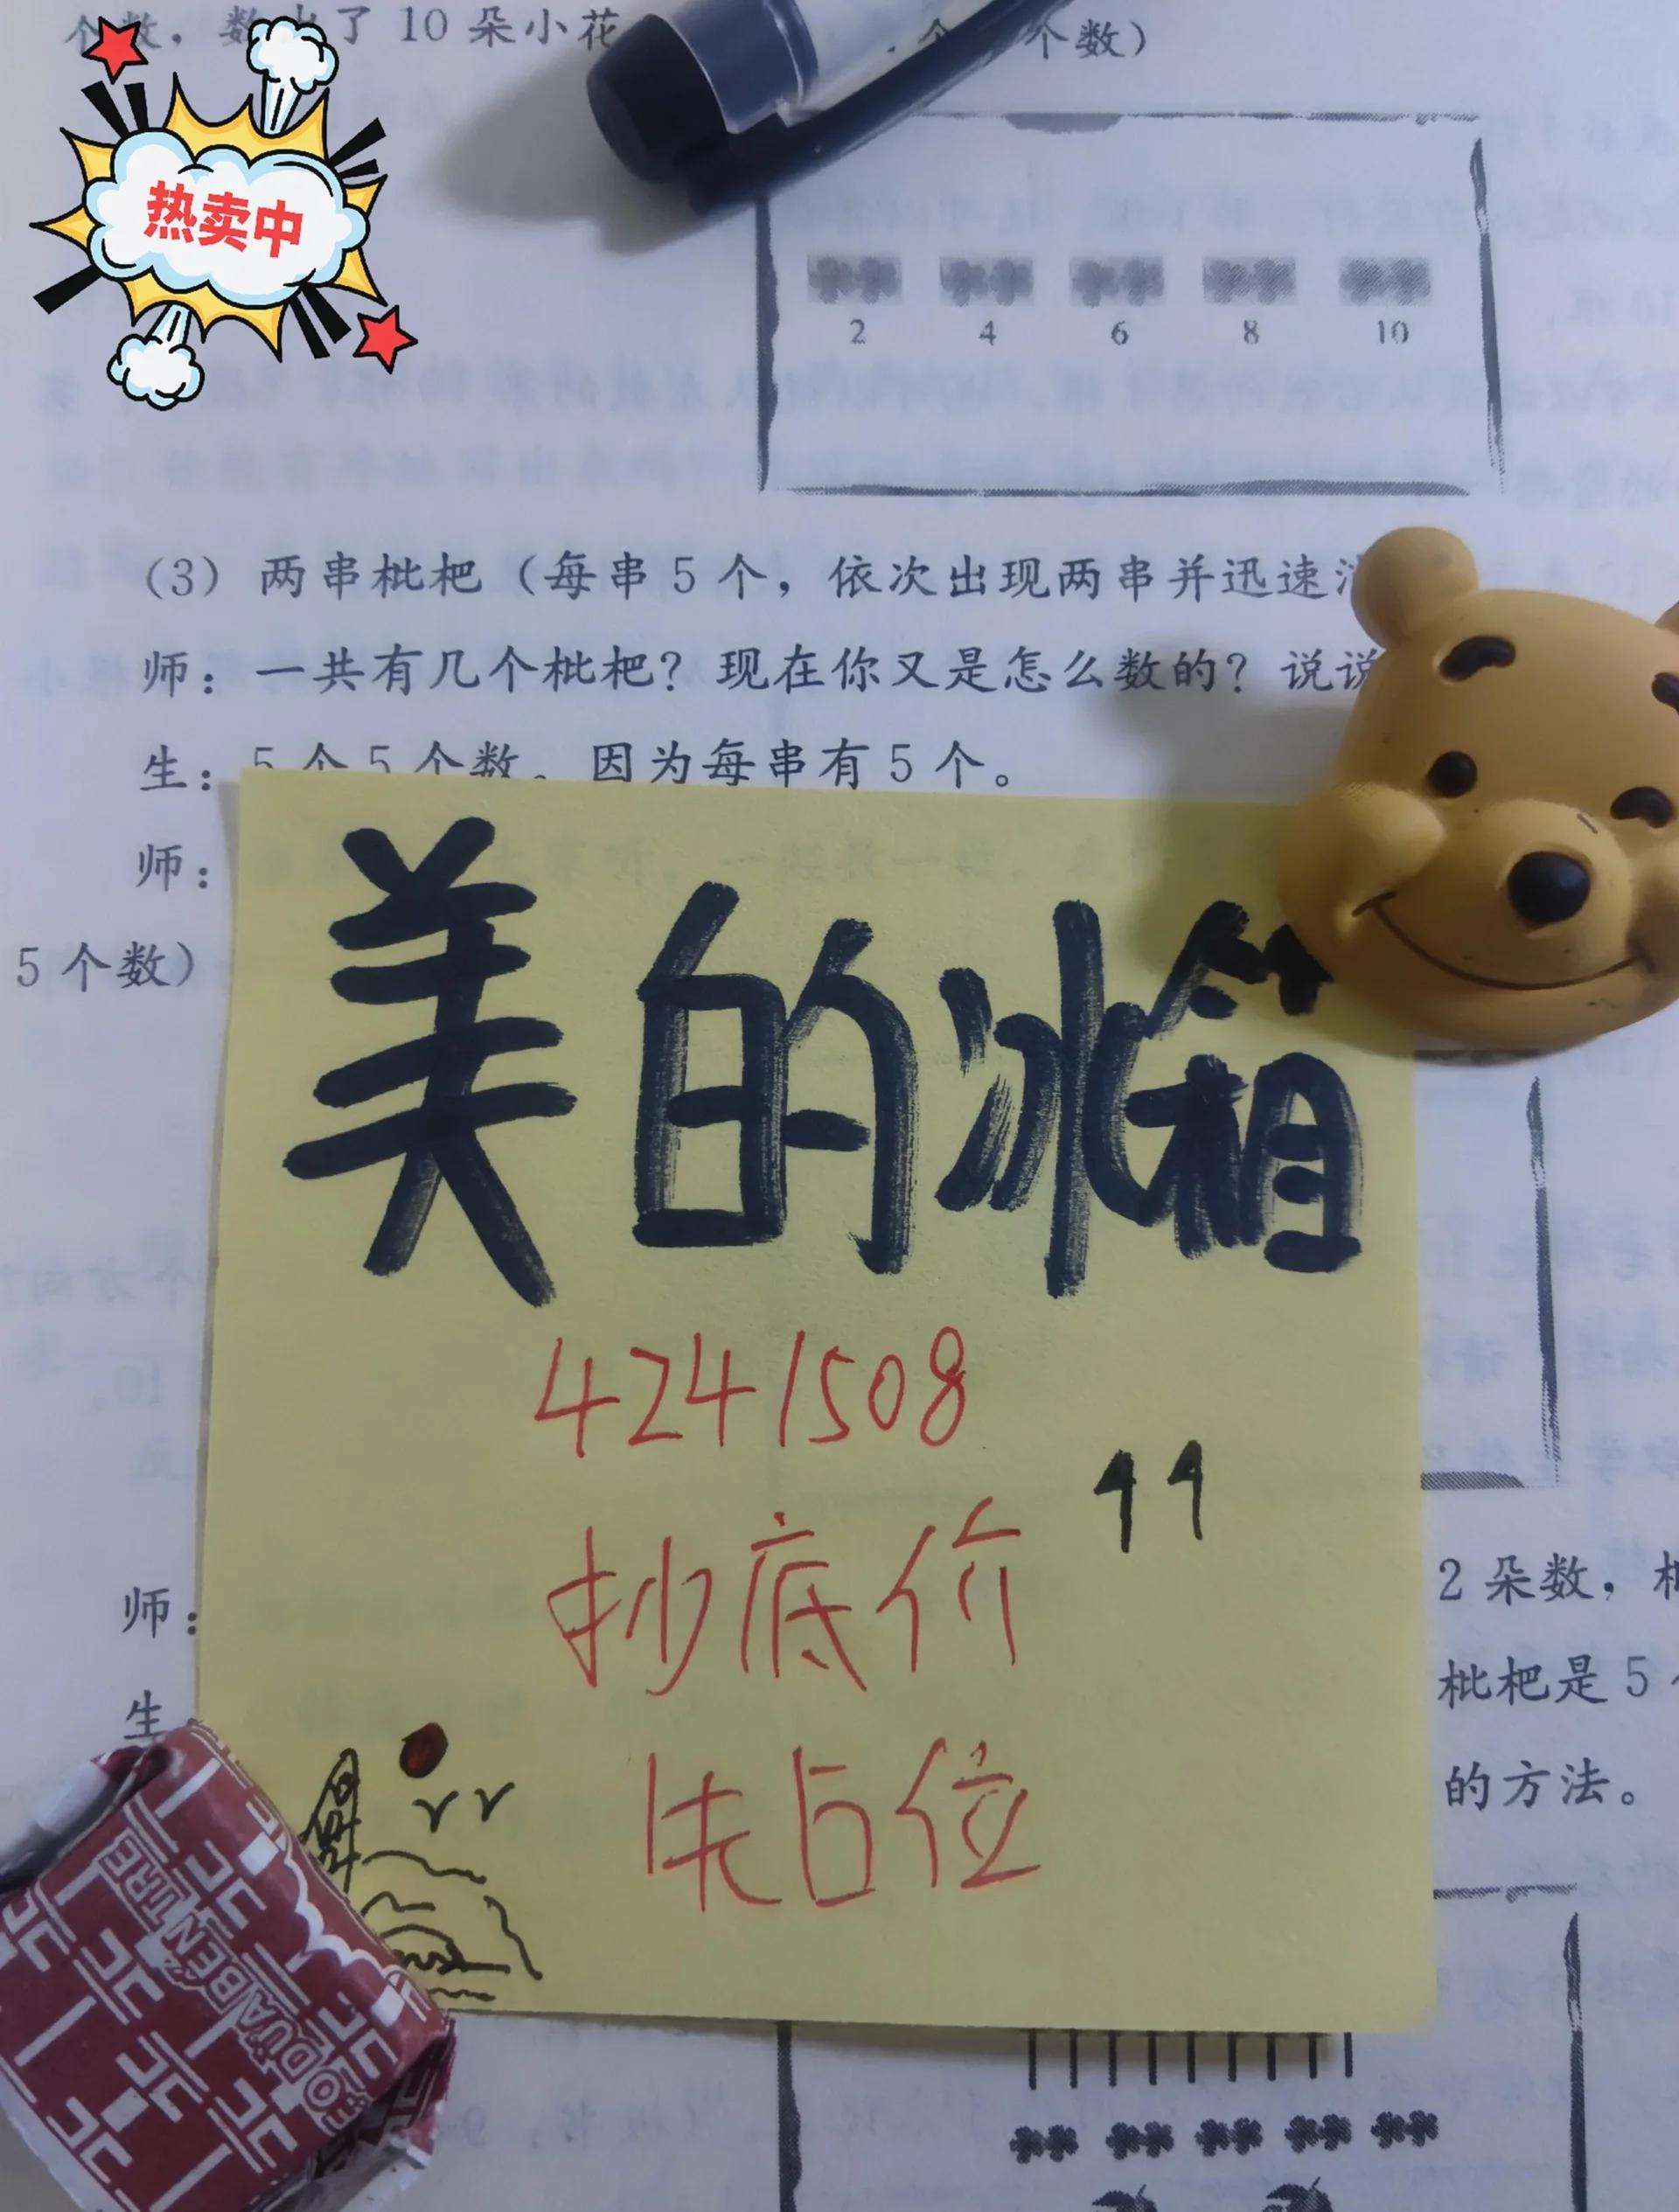 个数，数出了 10 朵小花
个数）
热卖中
2 4 6 8 10
（3）两串枇杷（每串 5 个，依次出现两串并迅速
师：一共有几个枇杷？现在你又是怎么数的？说说
生：5 个 5 个数。因为每串有 5 个。
师：
5 个数）
美的冰箱
4241508
抄底价
师：
2 朵数，
生
枇杷是 5
占位
的方法。